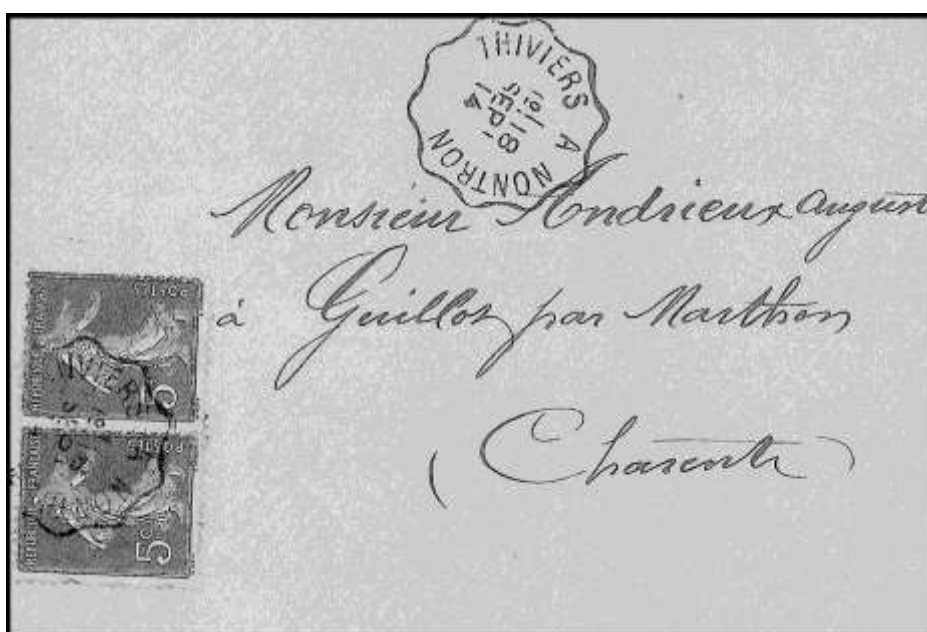 THIVIERS A NONTRON
18
SEP
14
Monsieur Andrieux August
à Guillot par Marthon
(Charente)
REPUBLIQUE FRANCAISE
POSTES
5c
REPUBLIQUE FRANCAISE
POSTES
5c